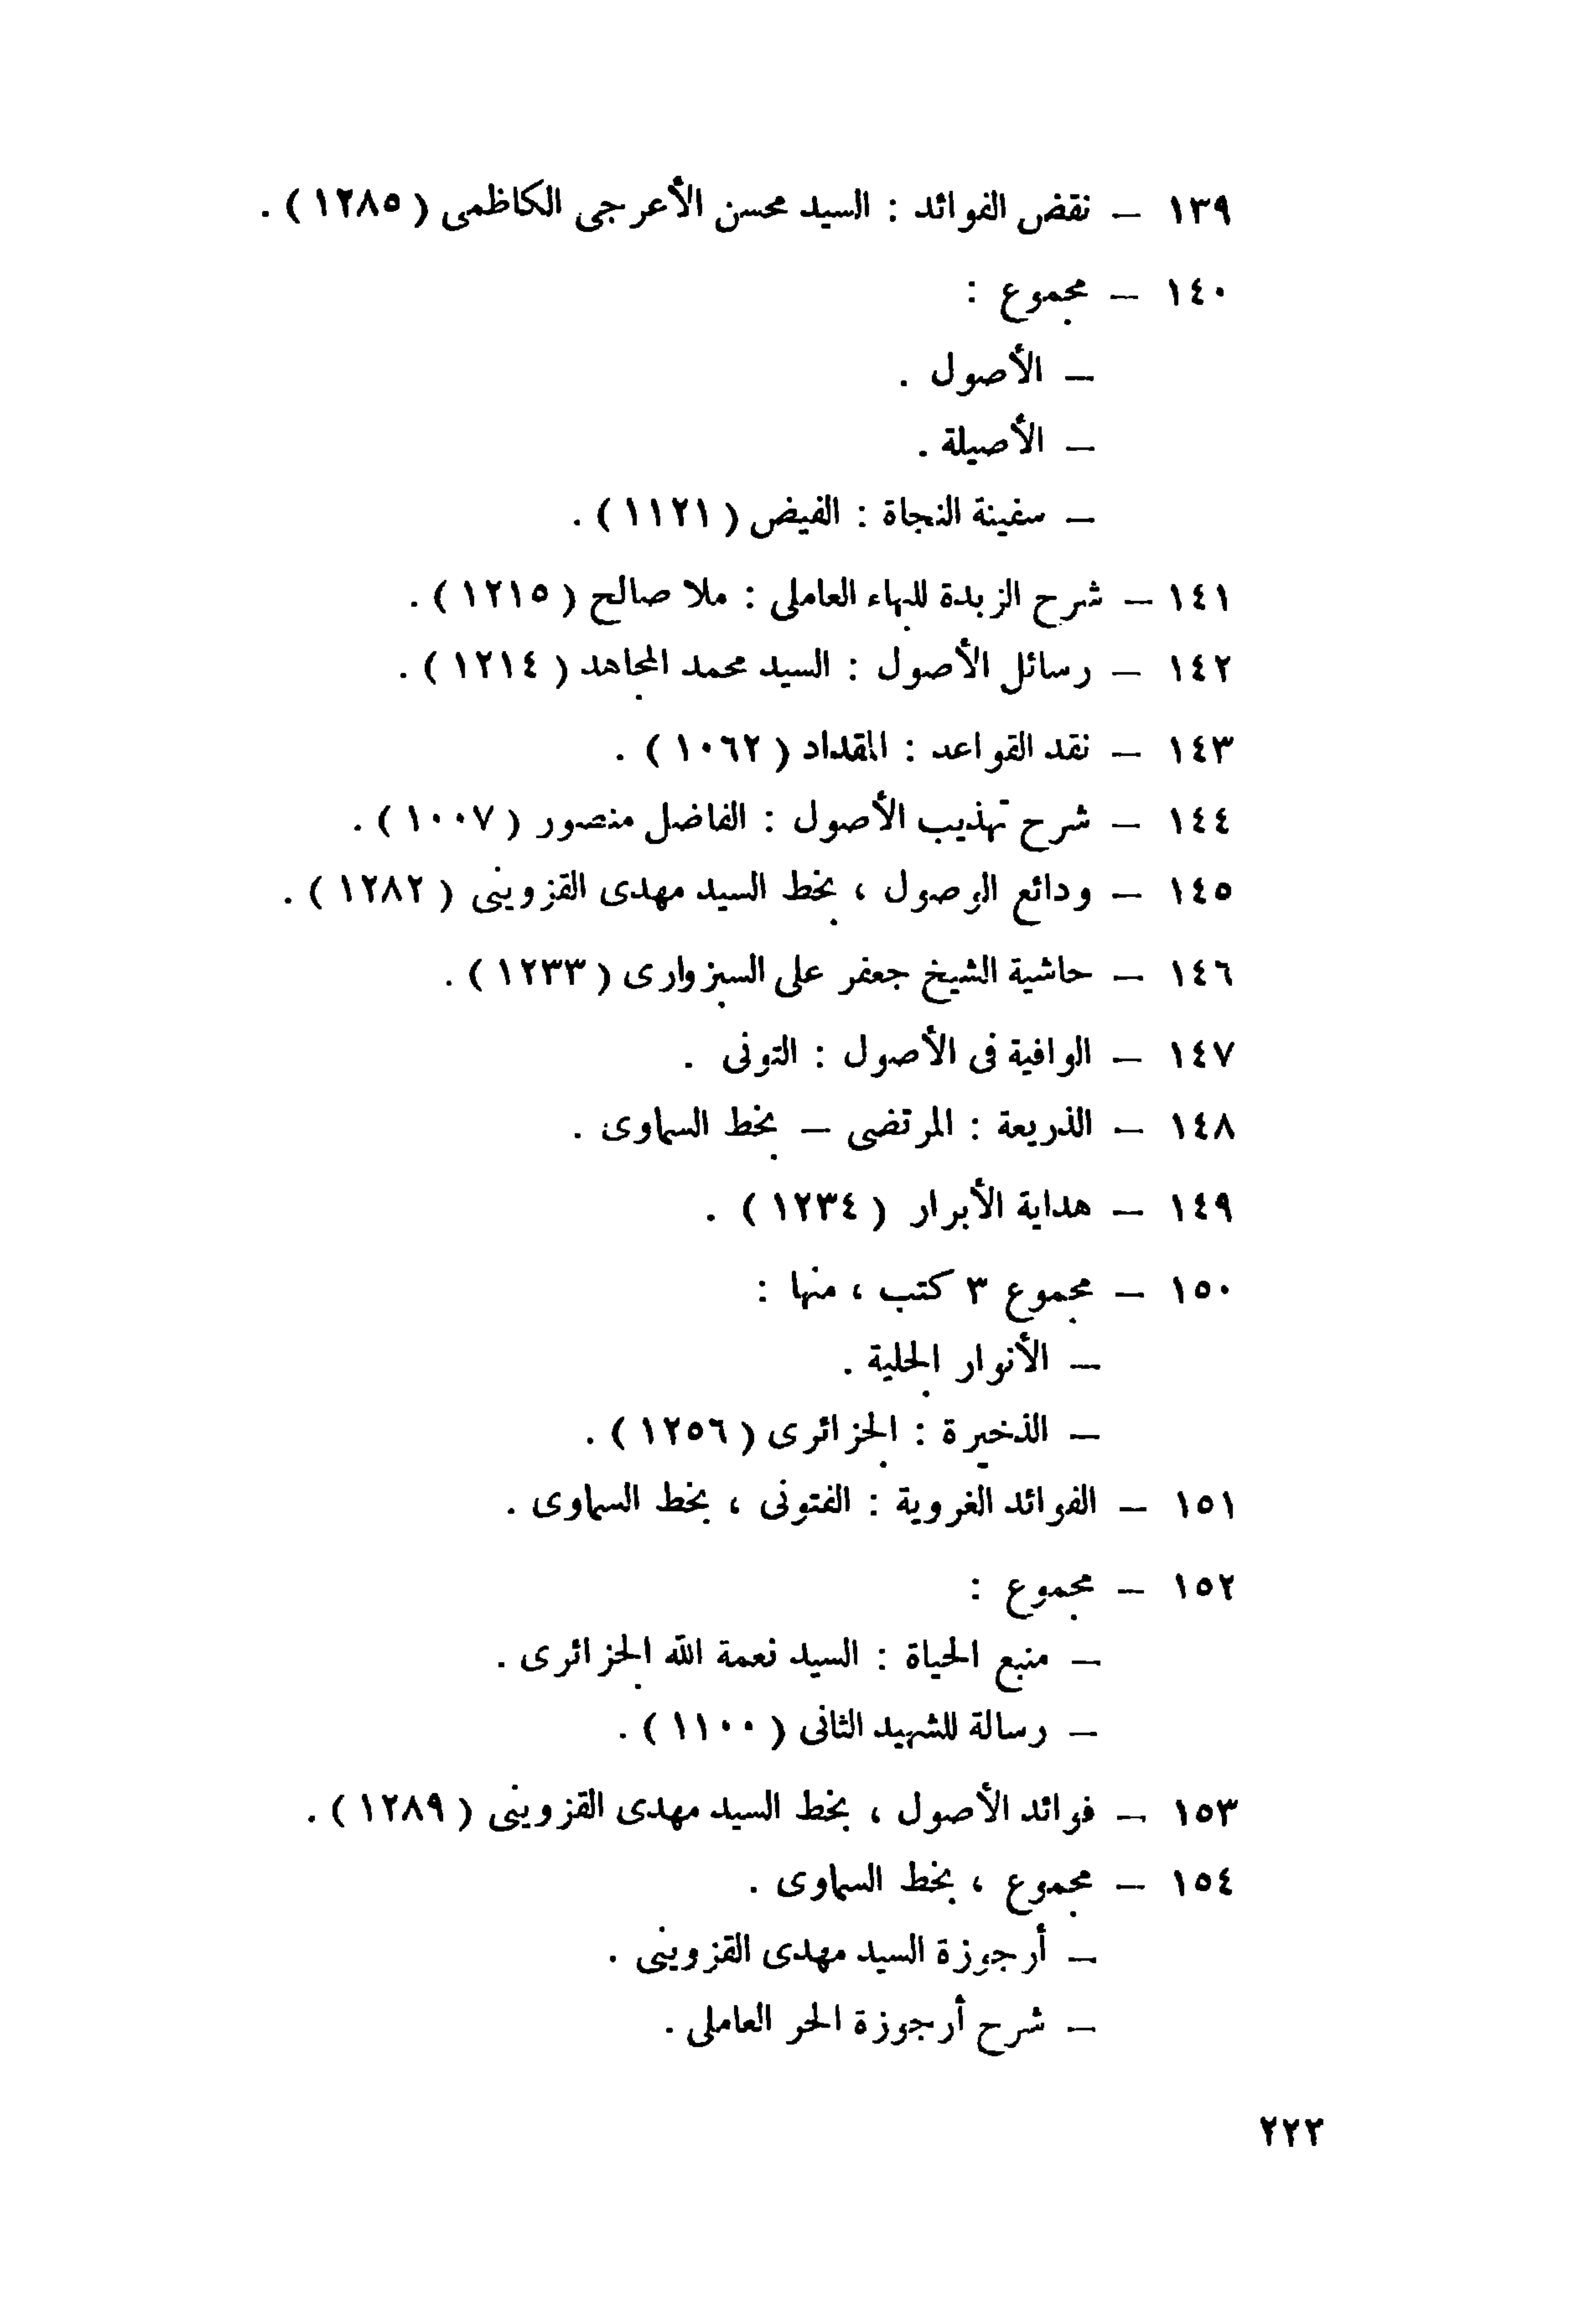 ١٣٩ – نقض الفوائد : السيد محسن الأعرجى الكاظمى ( ١٢٨٥ ) .
١٤٠ – مجموع :
– الأصول .
– الأصيلة .
– سفينة النجاة : الفيض ( ١١٢١ ) .
١٤١ – شرح الزبدة للبهاء العاملى : ملا صالح ( ١٢١٥ ) .
١٤٢ – رسائل الأصول : السيد محمد المجاهد ( ١٢١٤ ) .
١٤٣ – نقد القواعد : المقداد ( ١٠٦٢ ) .
١٤٤ – شرح تهذيب الأصول : الفاضل منصور ( ١٠٠٧ ) .
١٤٥ – ودائع الوصول ، بخط السيد مهدى القزوينى ( ١٢٨٢ ) .
١٤٦ – حاشية الشيخ جعفر على السبزوارى ( ١٢٣٣ ) .
١٤٧ – الوافية فى الأصول : التونى .
١٤٨ – الذريعة : المرتضى – بخط السماوى .
١٤٩ – هداية الأبرار ( ١٢٣٤ ) .
١٥٠ – مجموع ٣ كتب ، منها :
– الأنوار الجلية .
– الذخيرة : الجزائرى ( ١٢٥٦ ) .
١٥١ – الفوائد الغروية : الفتونى ، بخط السماوى .
١٥٢ – مجموع :
– منبع الحياة : السيد نعمة الله الجزائرى .
– رسالة للشهيد الثانى ( ١١٠٠ ) .
١٥٣ – فوائد الأصول ، بخط السيد مهدى القزوينى ( ١٢٨٩ ) .
١٥٤ – مجموع ، بخط السماوى .
– أرجوزة السيد مهدى القزوينى .
– شرح أرجوزة الحر العاملى .
٢٢٢